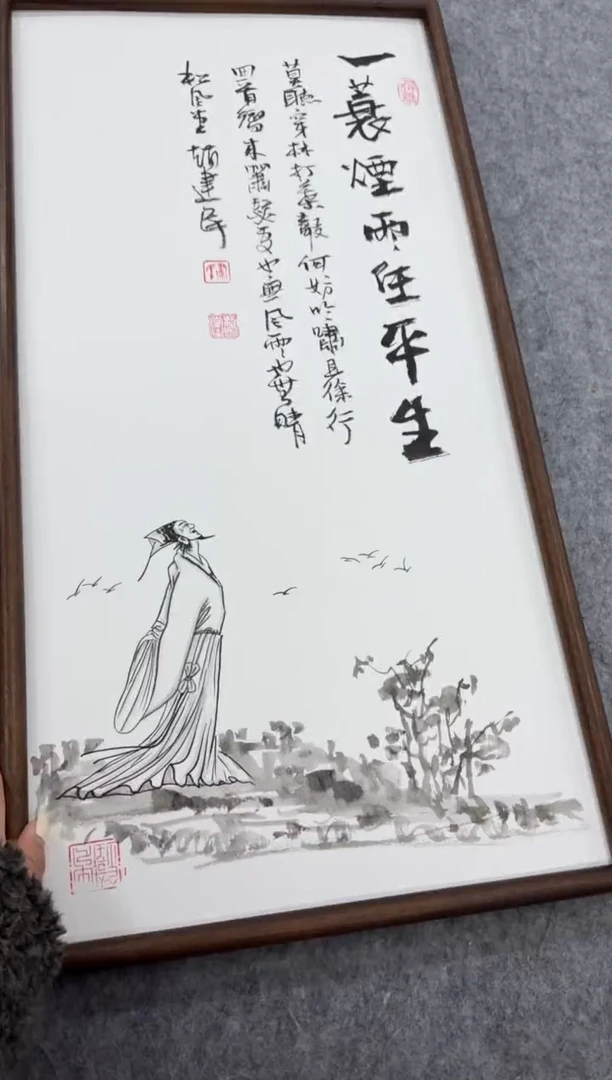 一蓑煙雨任平生
莫聽穿林打葉聲何妨吟嘯且徐行
回首嚮来蕭瑟處也無风雨也無晴
松风堂 趙建民